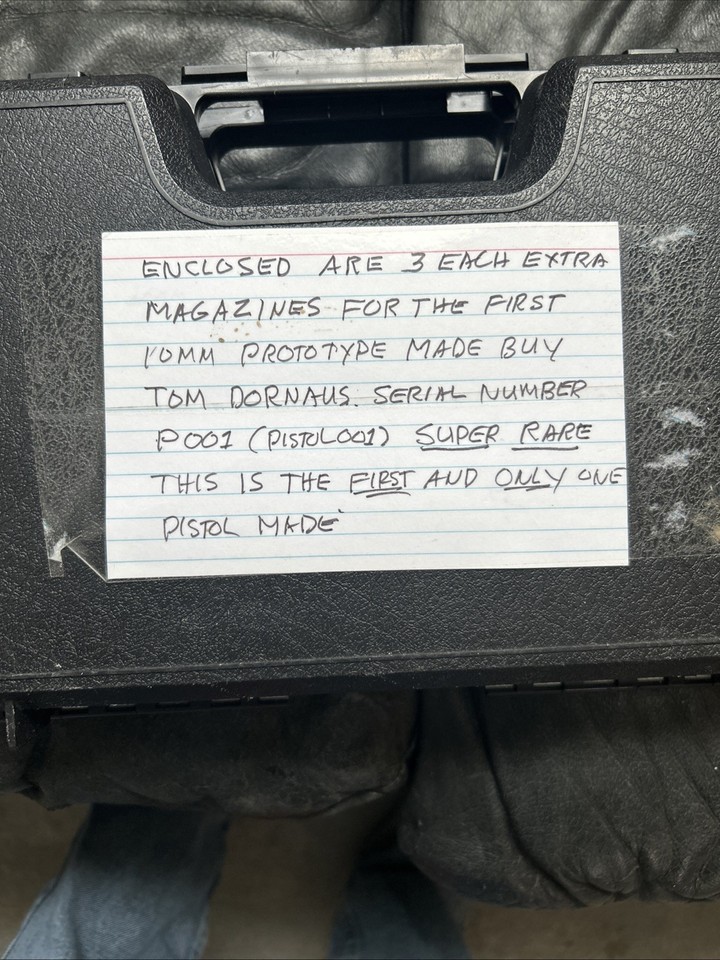 ENCLOSED ARE 3 EACH EXTRA
MAGAZINES FOR THE FIRST
10MM PROTOTYPE MADE BUY
TOM DORNAUS. SERIAL NUMBER
P001 (PISTOL001) SUPER RARE
THIS IS THE FIRST AND ONLY ONE
PISTOL MADE